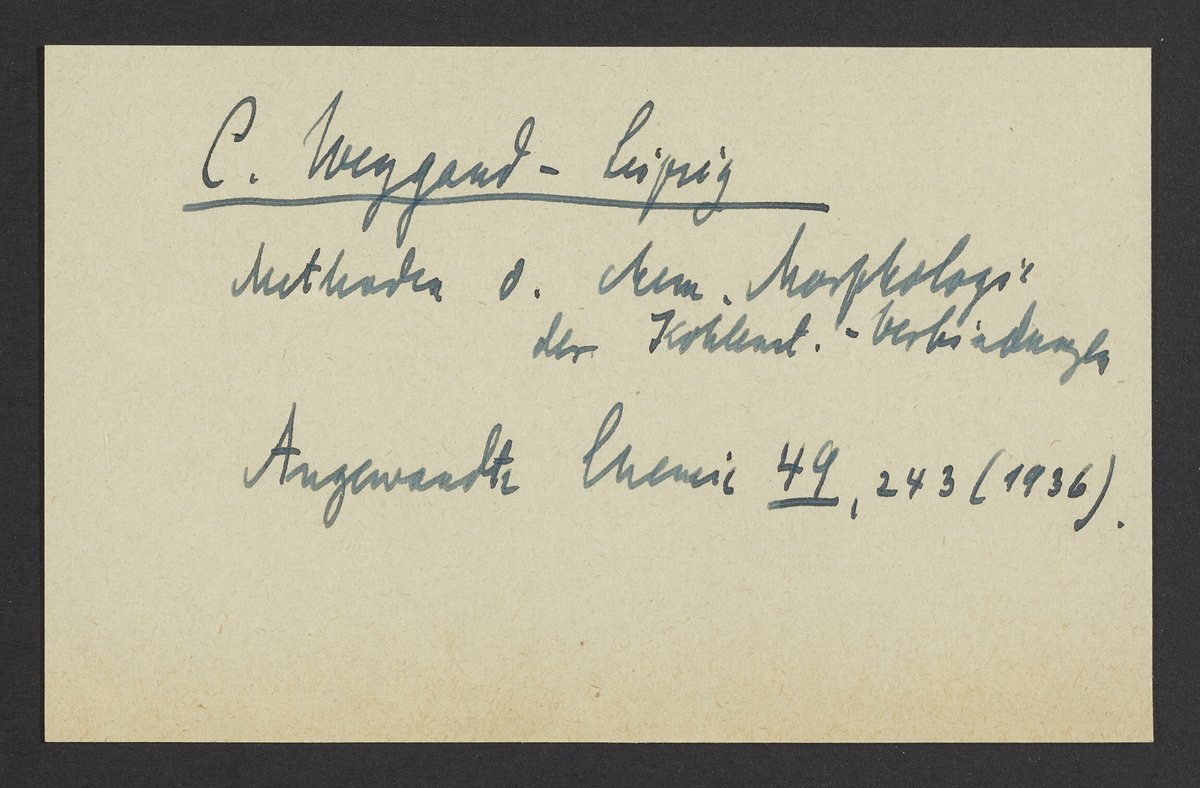 C. Weygand - Leipzig
Methoden d. chem. Morphologie
der Kohlenst.-Verbindungen
Angewandte Chemie 49, 243 (1936).